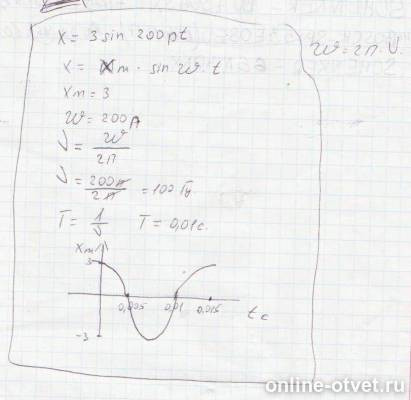 x = 3 sin 200pt
x = Xm · sin ω t
xm = 3
ω = 200π
ν = ω/2π
ν = 200π/2π = 100 Гц
T = 1/ν T = 0,01 с.
ω = 2π·ν
Xm
3
0,005 0,01 0,015
t c
-3
online-otvet.ru